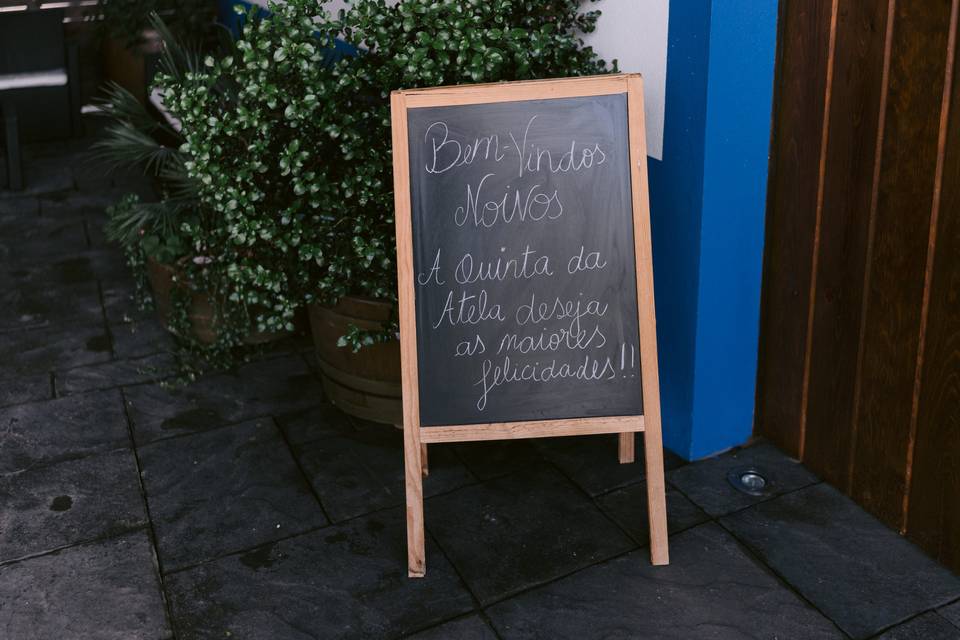 Bem-Vindos
Noivos
A Quinta da
Atela deseja
as maiores
felicidades!!